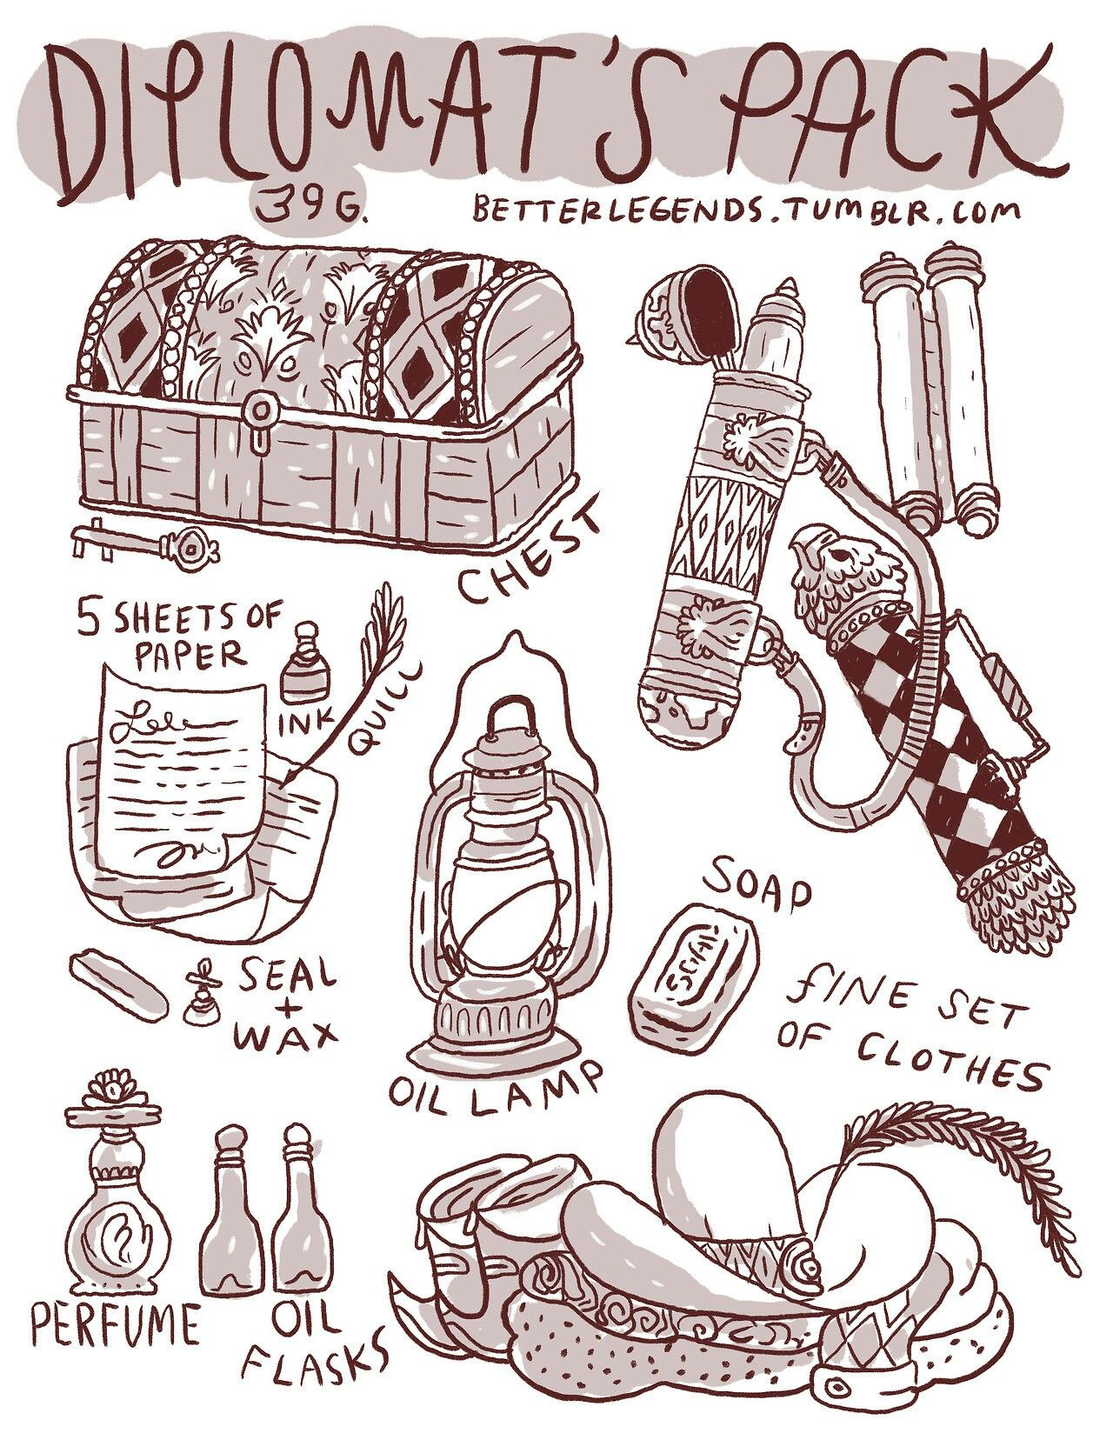 DIPLOMAT'S PACK
39 G.
BETTERLEGENDS.TUMBLR.COM
CHEST
5 SHEETS OF
PAPER
INK
QUILL
SOAP
SEAL
+
WAX
FINE SET
OF CLOTHES
OIL LAMP
PERFUME
OIL
FLASKS